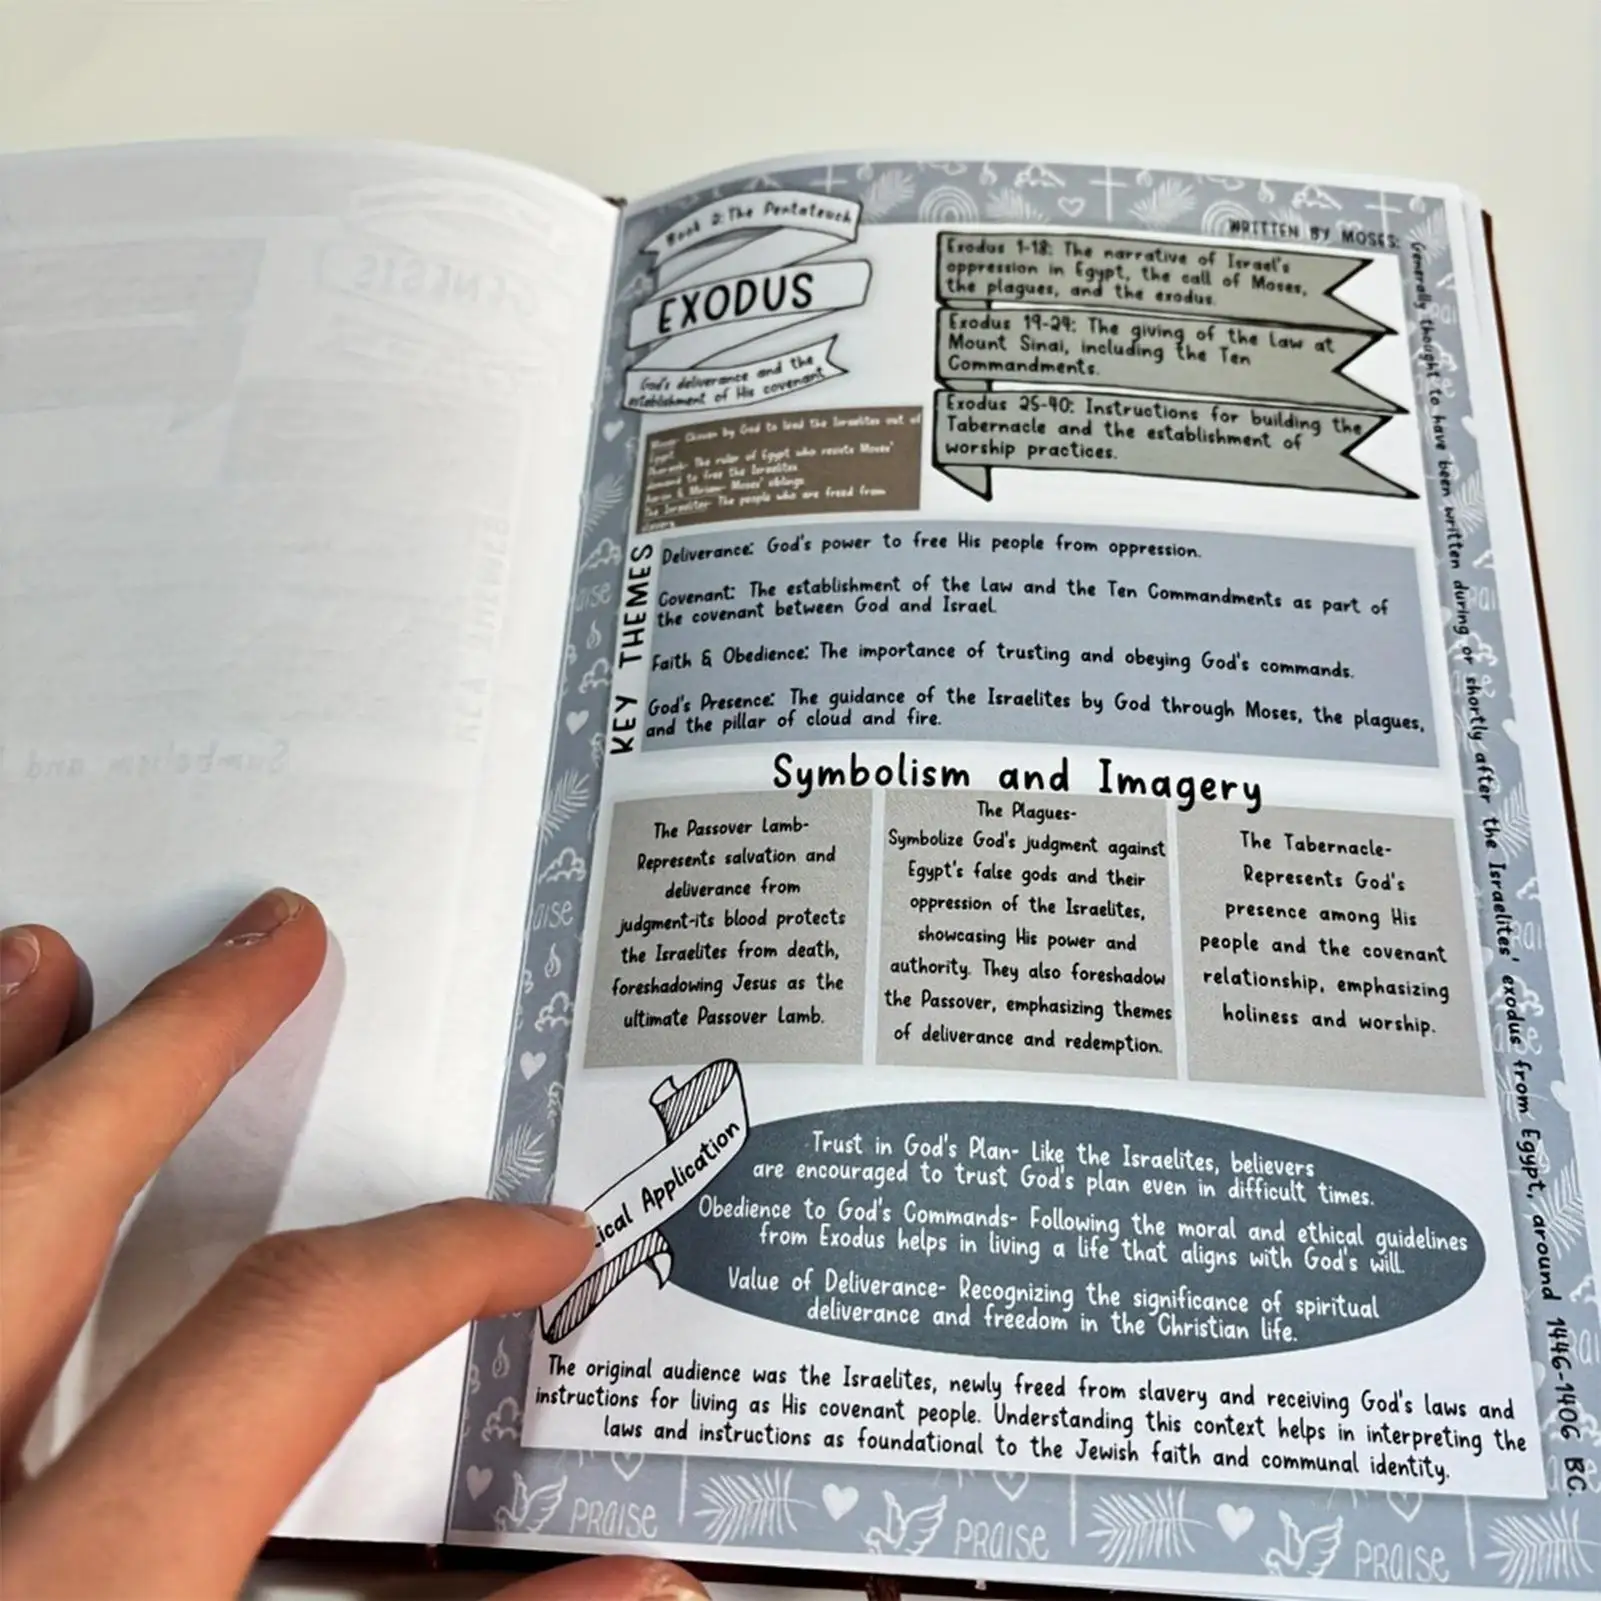 Book 2: The Pentateuch
EXODUS
God's deliverance and the
establishment of His covenant
WRITTEN BY MOSES:
Generally thought to have been written during or shortly after the Israelites' exodus from Egypt, around 1446-1406 BC.
Exodus 1-18: The narrative of Israel's
oppression in Egypt, the call of Moses,
the plagues, and the exodus.
Exodus 19-24: The giving of the Law at
Mount Sinai, including the Ten
Commandments.
Exodus 25-40: Instructions for building the
Tabernacle and the establishment of
worship practices.
Moses- Chosen by God to lead the Israelites out of
Egypt
Pharaoh- The ruler of Egypt who resists Moses'
demand to free the Israelites
Aaron & Miriam- Moses' siblings
The Israelites- The people who are freed from
slavery
KEY THEMES
Deliverance: God's power to free His people from oppression.
Covenant: The establishment of the Law and the Ten Commandments as part of
the covenant between God and Israel.
Faith & Obedience: The importance of trusting and obeying God's commands.
God's Presence: The guidance of the Israelites by God through Moses, the plagues,
and the pillar of cloud and fire.
Symbolism and Imagery
The Passover Lamb-
Represents salvation and
deliverance from
judgment-its blood protects
the Israelites from death,
foreshadowing Jesus as the
ultimate Passover Lamb.
The Plagues-
Symbolize God's judgment against
Egypt's false gods and their
oppression of the Israelites,
showcasing His power and
authority. They also foreshadow
the Passover, emphasizing themes
of deliverance and redemption.
The Tabernacle-
Represents God's
presence among His
people and the covenant
relationship, emphasizing
holiness and worship.
ical Application
Trust in God's Plan- Like the Israelites, believers
are encouraged to trust God's plan even in difficult times.
Obedience to God's Commands- Following the moral and ethical guidelines
from Exodus helps in living a life that aligns with God's will.
Value of Deliverance- Recognizing the significance of spiritual
deliverance and freedom in the Christian life.
The original audience was the Israelites, newly freed from slavery and receiving God's laws and
instructions for living as His covenant people. Understanding this context helps in interpreting the
laws and instructions as foundational to the Jewish faith and communal identity.
PRAISE
PRAISE
PRAISE